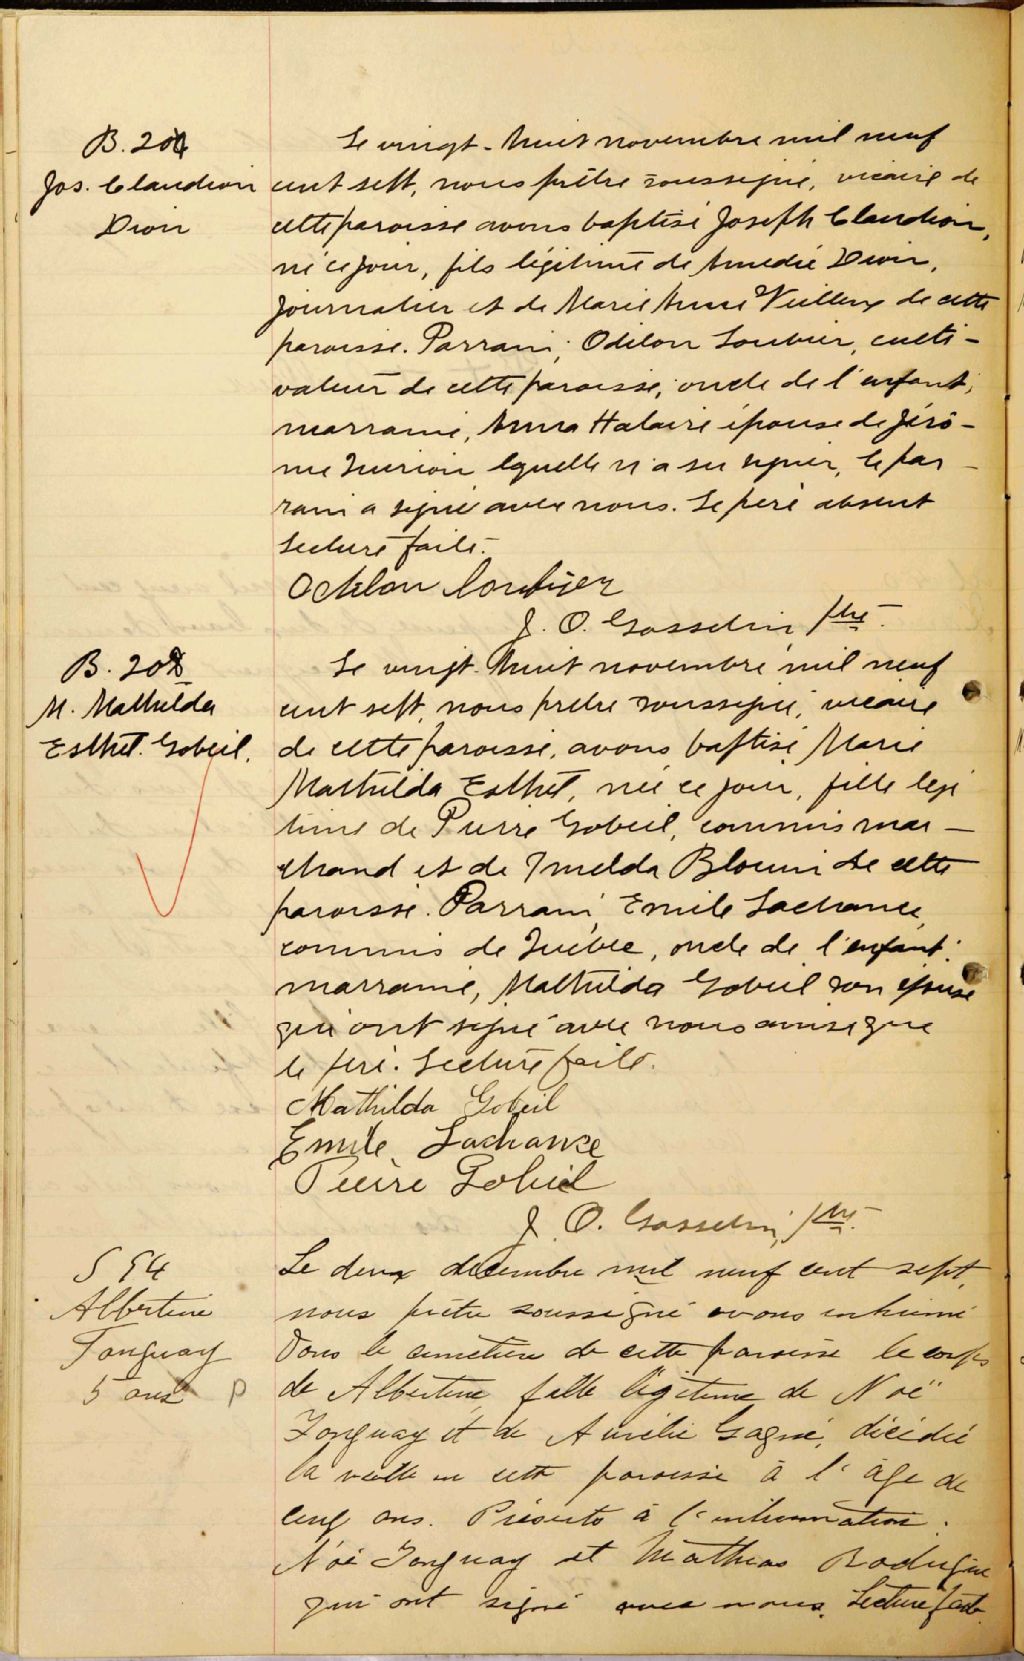 B. 204
Jos. Claudion
Dion
Le vingt-huit novembre mil neuf
cent sept, nous prêtre soussigné, vicaire de
cette paroisse avons baptisé Joseph Claudion,
né ce jour, fils légitime de Amédié Dion,
journalier et de Marie Anna Veilleux de cette
paroisse. Parrain, Odilon Loubier, culti-
vateur de cette paroisse, oncle de l'enfant,
marraine, Anna Halairé épouse de Jérô-
me laquelle n'a su signer, le par-
rain a signé avec nous. Le père absent
Lecture faite.
Odilon Loubier
J. O. Gosselin ptre
B. 208
M. Mathilda
Esthel. Gobeil.
Le vingt-huit novembre mil neuf
cent sept, nous prêtre soussigné, vicaire
de cette paroisse, avons baptisé Marie
Mathilda Esthel, née ce jour, fille légi
time de Pierre Gobeil, commis mar-
chand et de Imelda Blouin de cette
paroisse. Parrain, Emile Lachance,
commis de Québec, oncle de l'enfant.
marraine, Mathilda Gobeil son épouse
qui ont signé avec nous ainsi que
le père. Lecture faite.
Mathilda Gobeil
Emile Lachance
Pierre Gobeil
J. O. Gosselin, ptre
S 94
Albertine
Tanguay
5 ans P
Le deux decembre mil neuf cent sept,
nous prêtre soussigné avons inhumé
dans le cimetière de cette paroisse le corps
de Albertine, fille légitime de Noë
Tanguay et de Aurélie Gagné, décédée
la veille en cette paroisse à l'âge de
cinq ans. Présents à l'inhumation.
Noë Tanguay et Mathias Rodrigue
qui ont signé avec nous. Lecture faite.